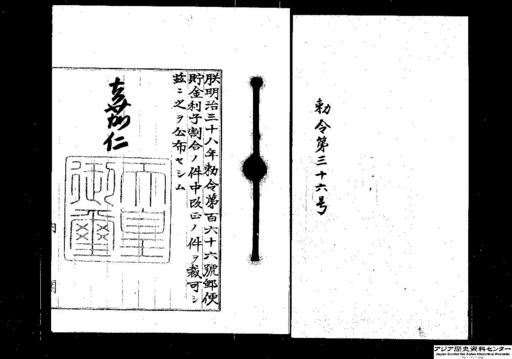 勅令第三十六号
朕明治三十八年勅令第百六十六號郵便
貯金利子割合ノ件中改正ノ件ヲ裁可シ
茲ニ之ヲ公布セシム
嘉仁
天皇
御璽
内閣
アジア歴史資料センター
Japan Center for Asian Historical Records